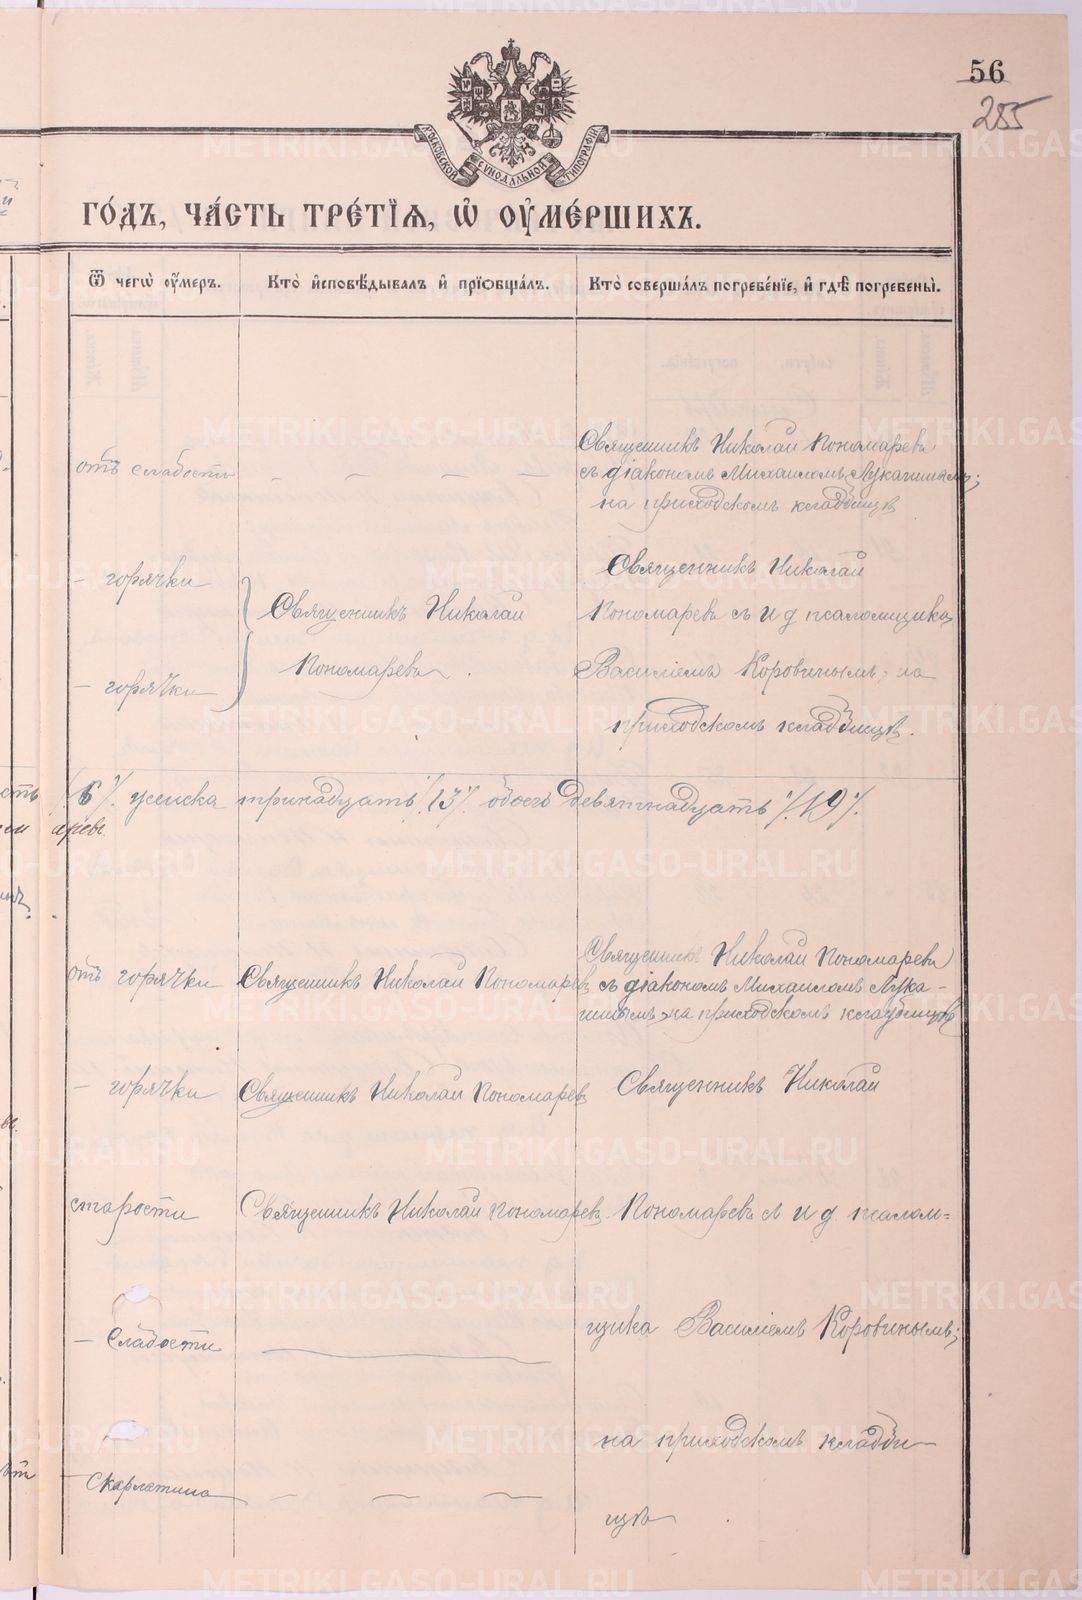 56
285
МОСКОВСКОЙ СѴНОДАЛЬНОЙ ТИПОГРАФІИ
ГО́ДЪ, ЧА́СТЬ ТРЕ́ТІѦ, Ѡ҆ ОУ҆МЕ́РШИХЪ.
Ѿ чегѡ̀ оу҆́меръ.
Кто̀ и҆сповѣ́дывалъ и҆ прїѡбща́лъ.
Кто̀ соверша́лъ погребе́нїе, и҆ гдѣ̀ погребены̀.
отъ слабости
Священникъ Николай Пономаревъ
съ діакономъ Михаиломъ Лукатинымъ;
на приходскомъ кладбищѣ
— горячки
— горячки
Священникъ Николай
Пономаревъ.
Священникъ Николай
Пономаревъ съ и д псаломщика
Василіемъ Коровинымъ; на
приходскомъ кладбищѣ.
/6/. женска тринадцать /13/. обоего девятнадцать /19/.
отъ горячки
Священникъ Николай Пономаревъ
Священникъ Николай Пономаревъ
съ діакономъ Михаиломъ Лука-
тинымъ на приходскомъ кладбищѣ
— горячки
Священникъ Николай Пономаревъ
Священникъ Николай
старости
Священникъ Николай Пономаревъ.
Пономаревъ съ и д псалом=
— Слабости
щика Василіемъ Коровинымъ;
на приходскомъ кладби—
— Скарлатина
щѣ.
METRIKI.GASO-URAL.RU